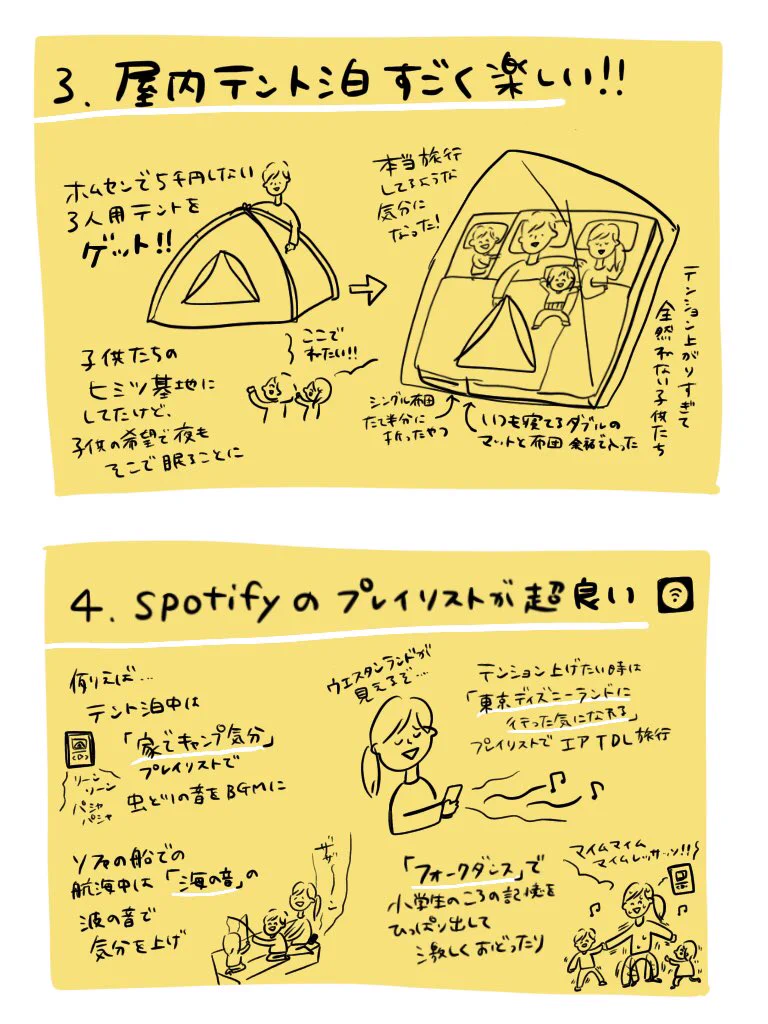 3. 屋内テント泊 すごく楽しい!!
ホムセンで5千円しない
3人用テントを
ゲット!!
本当旅行
してるような
気分に
なった!
子供たちの
ヒミツ基地に
してたけど、
子供の希望で夜も
そこで眠ることに
ここで
ねたい!!
シングル布団
たて半分に
折ったやつ
いつも寝てるダブルの
マットと布団 余裕で入った
テンション上がりすぎて
全然ねない子供たち
4. spotifyの プレイリストが超良い
例えば…
テント泊中は
「家でキャンプ気分」
プレイリストで
虫や川の音をBGMに
リーン
リーン
パシャ
パシャ
ウエスタンランドが
見えるぞ…
テンション上げたい時は
「東京ディズニーランドに
行った気になれる」
プレイリストで エアTDL旅行
ソファの船での
航海中は「海の音」の
波の音で
気分を上げ
ザザーン
「フォークダンス」で
小学生のころの記憶を
ひっぱり出して
激しくおどったり
マイムマイム
マイムレッサッソ!!